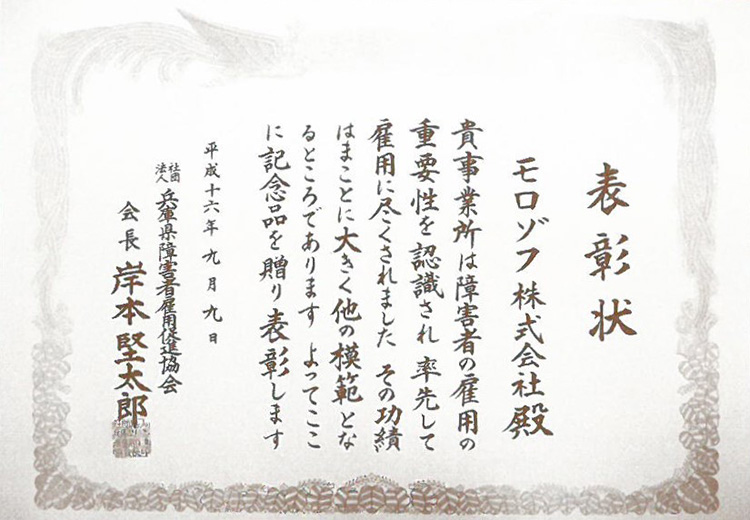 表彰状
モロゾフ株式会社殿
貴事業所は障害者の雇用の
重要性を認識され率先して
雇用に尽くされました その功績
はまことに大きく他の模範とな
るところであります よってここ
に記念品を贈り表彰します
平成十六年九月九日
社団法人 兵庫県障害者雇用促進協会
会長 岸本堅太郎